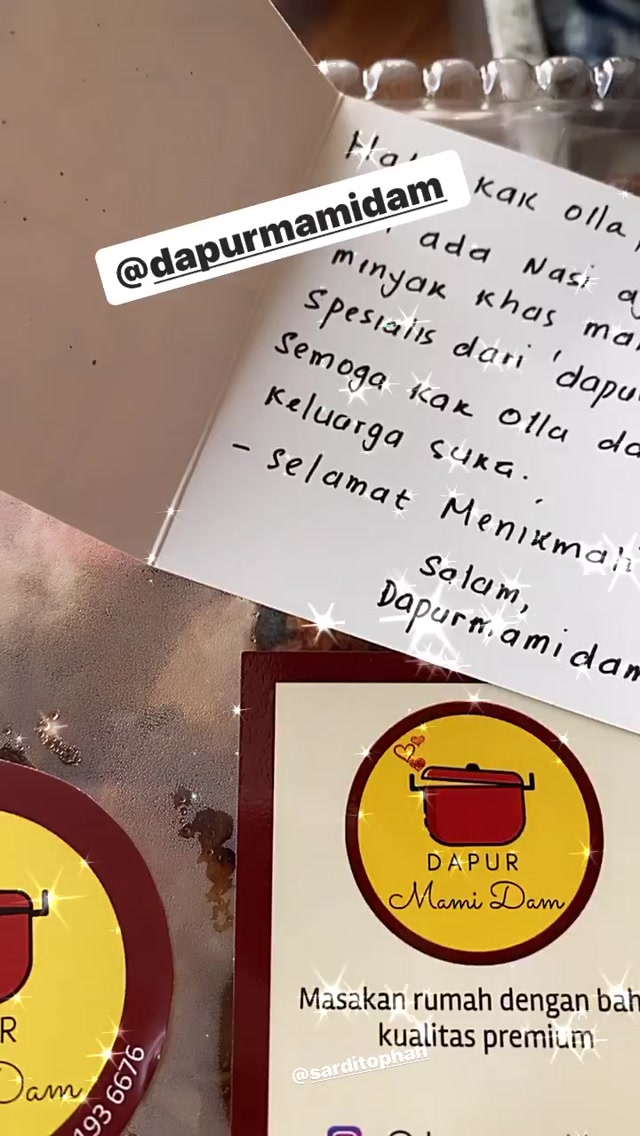 @dapurmamidam
kak olla,
ada Nasi
minyak khas
Spesialis dari 'dapu
Semoga kak olla da
keluarga suka.
- selamat Menikmati
salam,
Dapurmamidam
DAPUR
Mami Dam
Masakan rumah dengan bah
kualitas premium
@sarditophan
R
Dam
193 6676